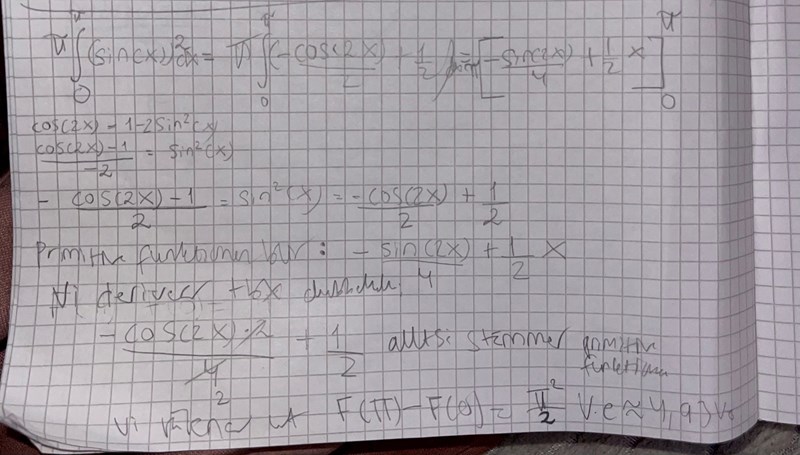 π∫₀^π (sin(x))² dx = π∫₀^π (-cos(2x)/2 + 1/2) = [-sin(2x)/4 + 1/2 x]₀^π
cos(2x) = 1-2sin²(x)
(cos(2x)-1)/-2 = sin²(x)
- (cos(2x)-1)/2 = sin²(x) = -cos(2x)/2 + 1/2
Primitiva funktionen blir: - sin(2x)/4 + 1/2 x
Vi deriverar
- cos(2x)·2/4 2 + 1/2 alltså stämmer primitiva
funktionen
Vi räknar ut F(π)-F(0) = π²/2 v.e ≈ 4,93 v.e